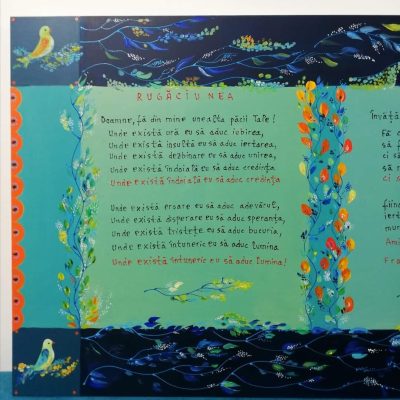 RUGĂCIUNEA
Doamne, fă din mine unealta păcii Tale!
Unde există ură eu să aduc iubirea,
Unde există insultă eu să aduc iertarea,
Unde există dezbinare eu să aduc unirea,
Unde există îndoială eu să aduc credința
Unde există îndoială eu să aduc credința
Unde există eroare eu să aduc adevărul,
Unde există disperare eu să aduc speranța,
Unde există tristețe eu să aduc bucuria,
Unde există întuneric eu să aduc lumina
Unde există întuneric eu să aduc lumina!
Învăță
Fă c
să f
să
să
ci s
fiind
iert
mur
Ami
Fra